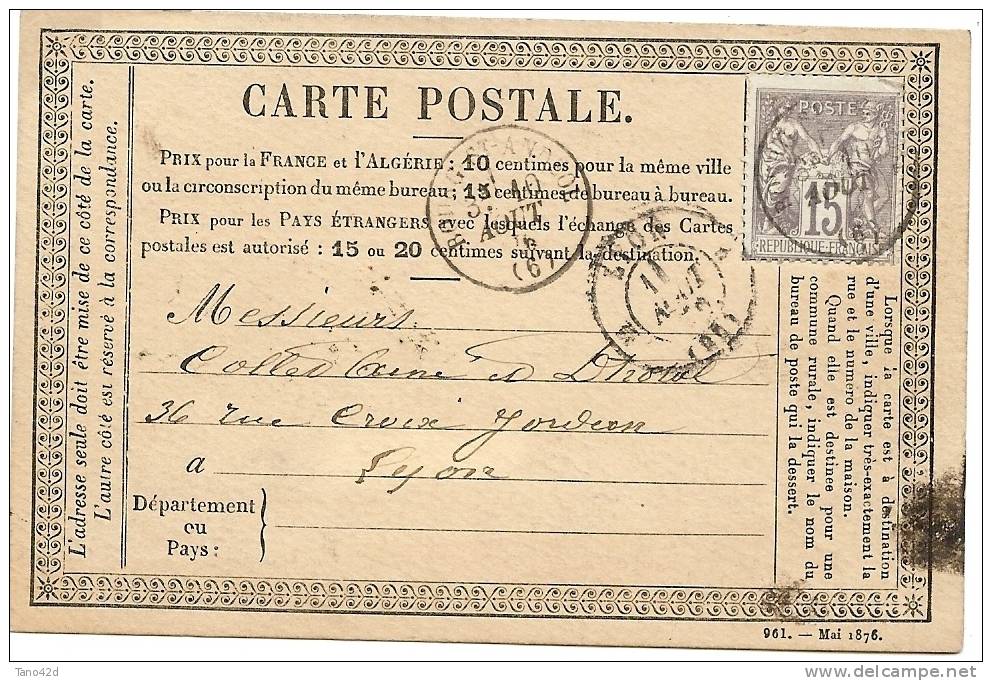 CARTE POSTALE.
PRIX pour la FRANCE et l'ALGÉRIE : 10 centimes pour la même ville
ou la circonscription du même bureau; 15 centimes de bureau à bureau.
PRIX pour les PAYS ÉTRANGERS avec lesquels l'échange des Cartes
postales est autorisé : 15 ou 20 centimes suivant la destination.
L'adresse seule doit être mise de ce côté de la carte.
L'autre côté est réservé à la correspondance.
POSTE
15
REPUBLIQUE FRANÇAISE
AOUT
AOUT
(6)
LYON
Messieurs
Collet
36 rue Croix Jordan
a Lyon
Département
ou
Pays :
Lorsque la carte est à destination
d'une ville, indiquer très-exactement la
rue et le numero de la maison.
Quand elle est destinée pour une
commune rurale, indiquer le nom du
bureau de poste qui la dessert.
961. — Mai 1876.
Tano42d
delcampe.net